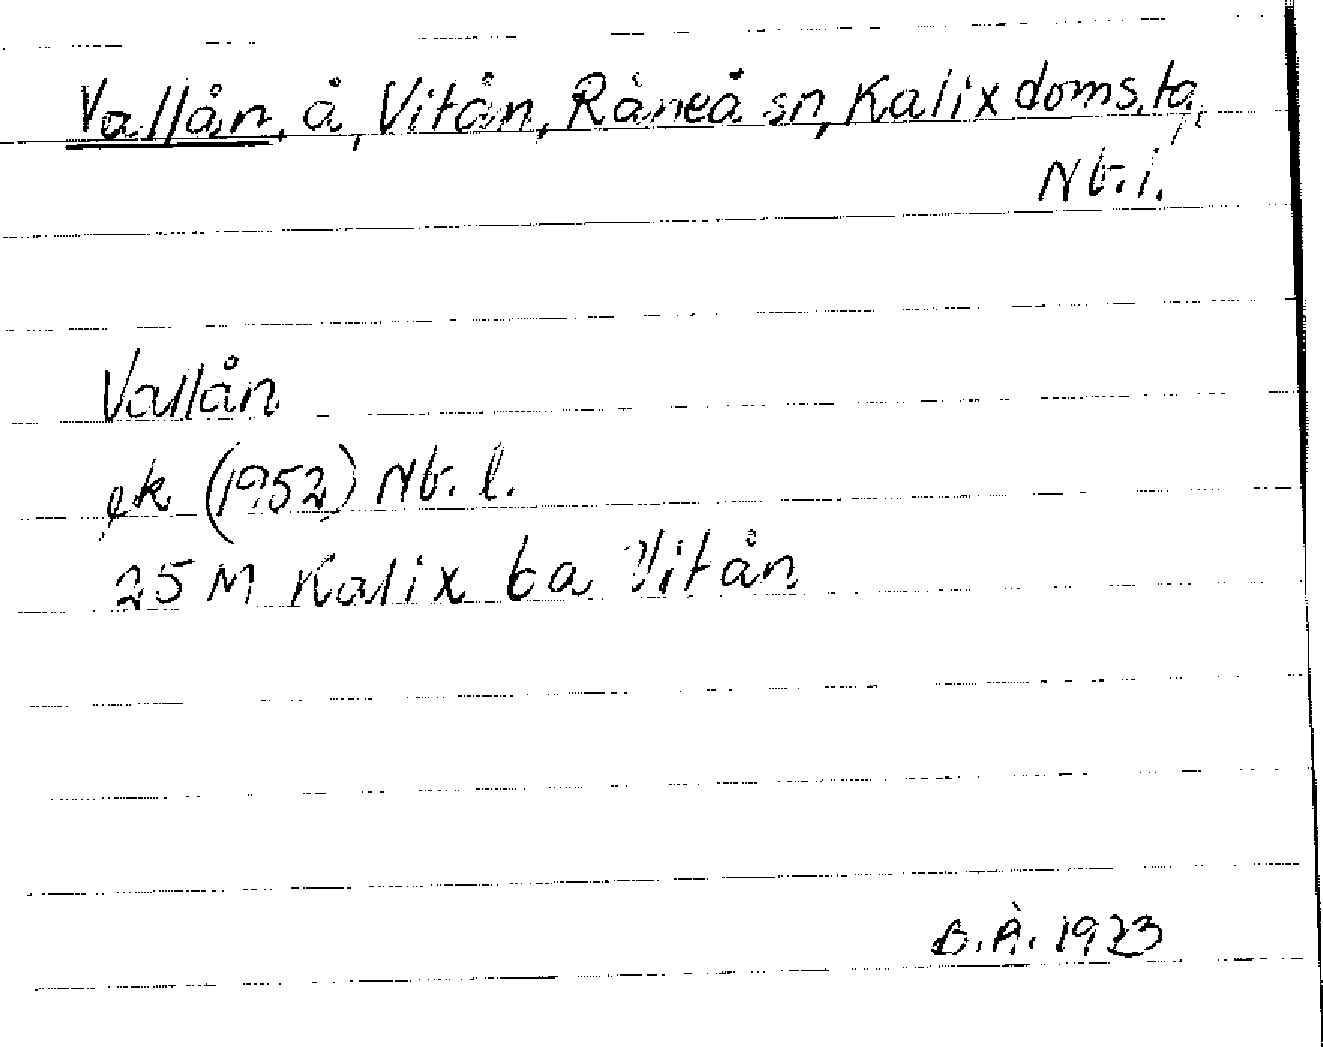 Vallån, å, Vitån, Råneå sn, Kalix doms.tg,
Nb.l.
Vallån
ek (1952) Nb. l.
25 M Kalix 6a Vitån
B.Å. 1973